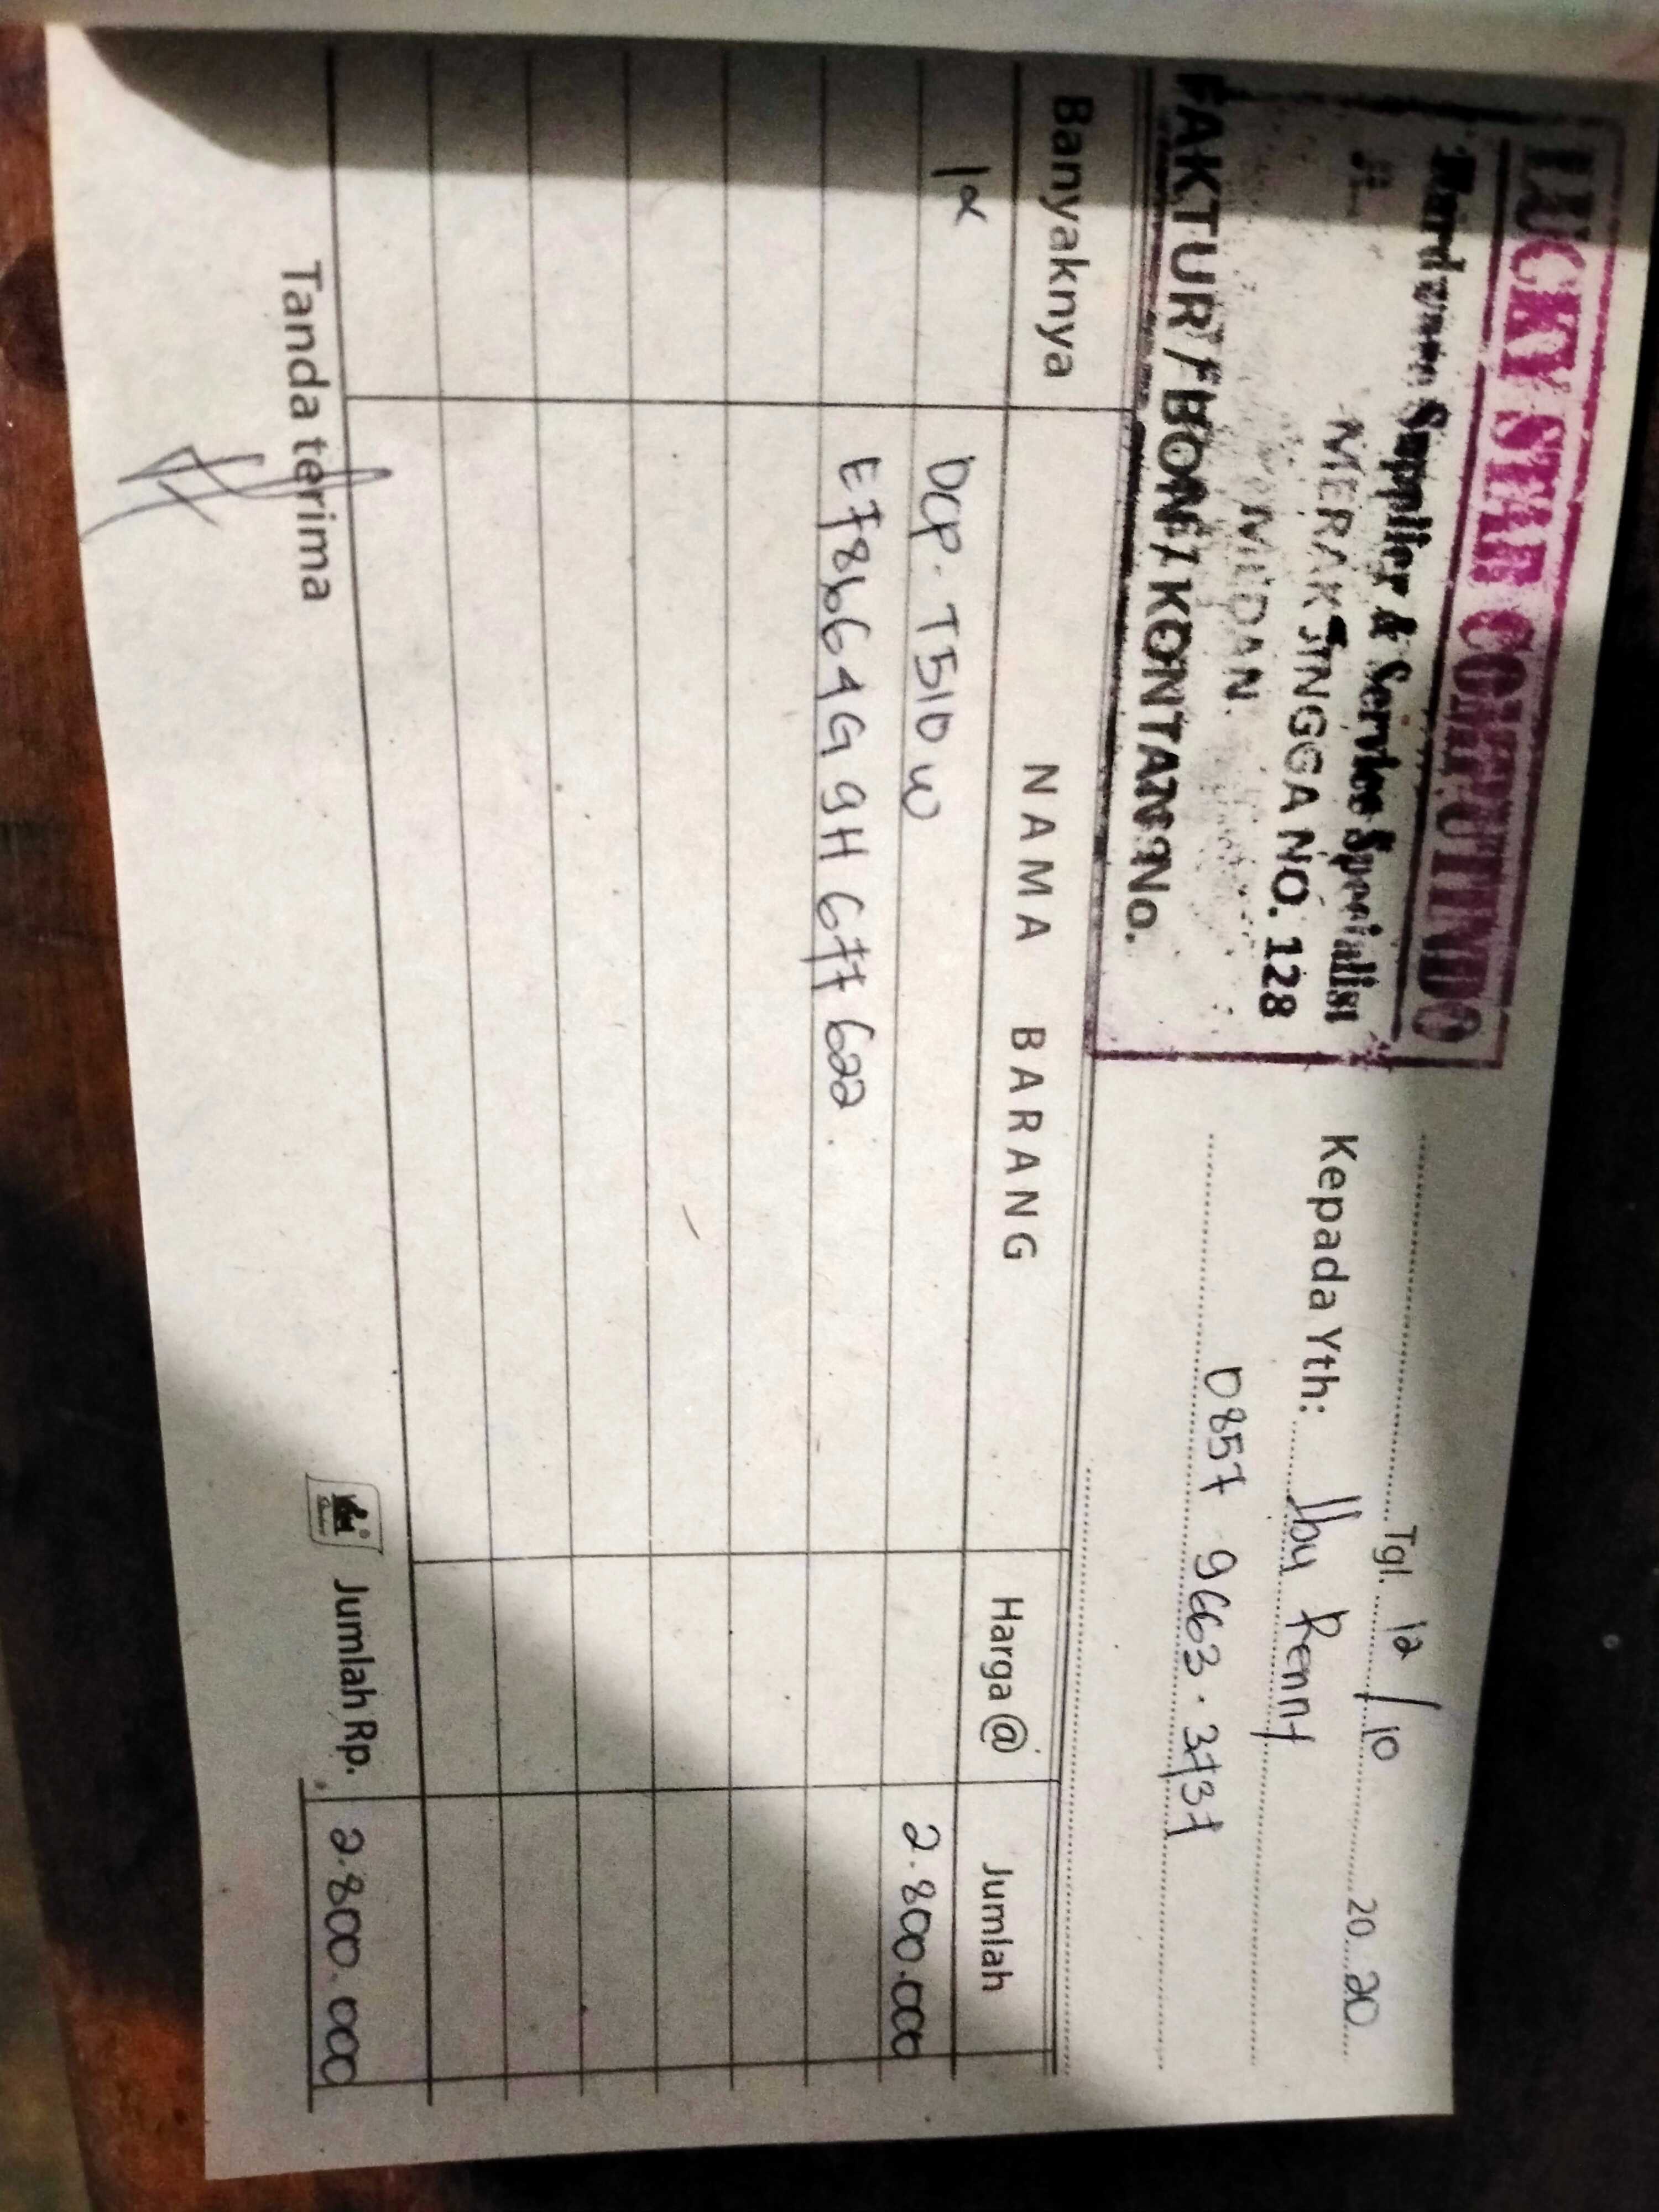 LUCKY STAR COMPUTINDO
Hardware Supplier & Service Specialist
JL. MERAK JINGGA NO. 128
MEDAN.
FAKTUR / BON / KONTAN No.
Tgl. 12/10 2020
Kepada Yth: Ibu Renny
0857 9663.3737
Banyaknya NAMA BARANG Harga @ Jumlah
1x DCP. T510W 2.800.000
E78b64G9H677622
Tanda terima Jumlah Rp. 2.800.000